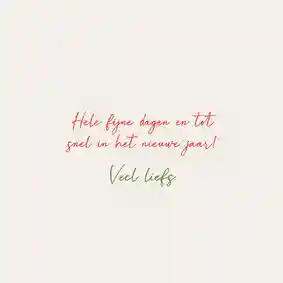 Hele fijne dagen en tot
snel in het nieuwe jaar!
Veel liefs